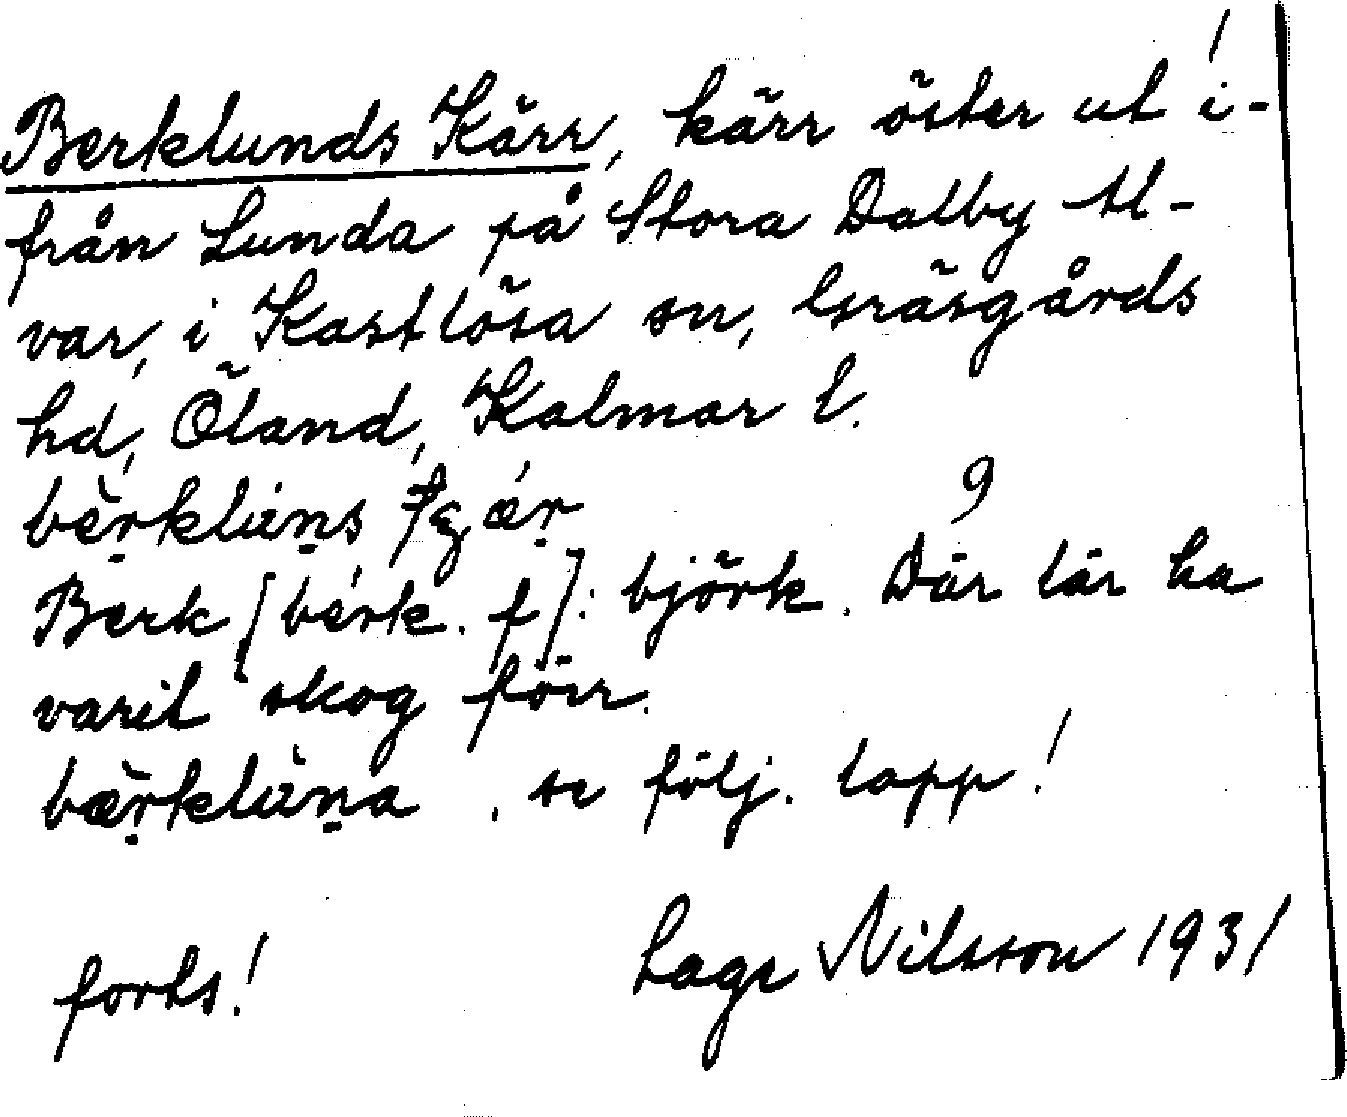 Berklunds Kärr, kärr öster ut i-
från Lunda på Stora Dalby til-
var, i Kastlösa sn, Gräsgårds
hd, Öland, Kalmar l.
bèṛklùṇs
Berk [bérk. f]: björk. Där lär ha
varit skog förr.
bæ̀ṛklùṇa, se följ. lapp!
forts! Lage Nilsson 1931